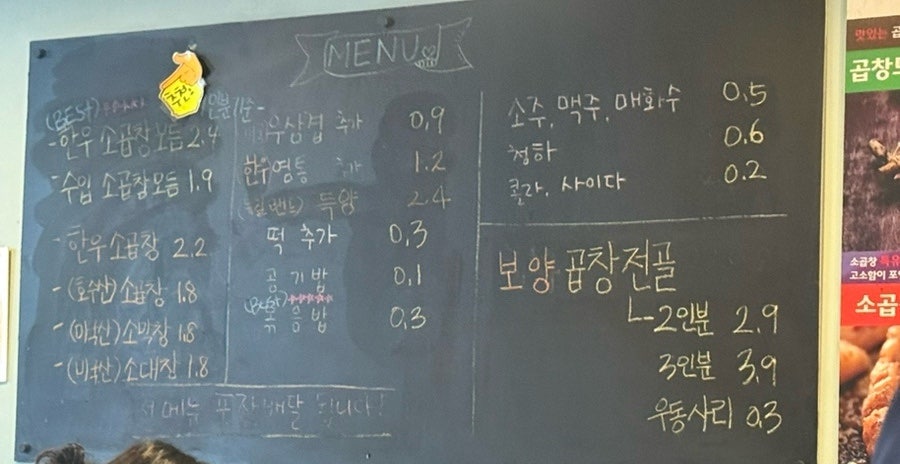 MENU
추천
(BEST)
1인분
- 한우 소곱창모듬 2.4
- 수입 소곱창모듬 1.9
- 한우소곱창 2.2
- (호주산)소곱창 1.8
- (미국산)소막창 1.8
- (미국산)소대창 1.8
우삼겹 추가 0.9
한우염통 추가 1.2
(뉴질랜드) 특양 2.4
떡 추가 0.3
공기밥 0.1
볶음밥 0.3
전메뉴 포장배달 됩니다!
소주, 맥주, 매화수 0.5
청하 0.6
콜라, 사이다 0.2
보양곱창전골
2인분 2.9
3인분 3.9
우동사리 0.3
맛있는
곱창
소곱창
고소함이
소곱